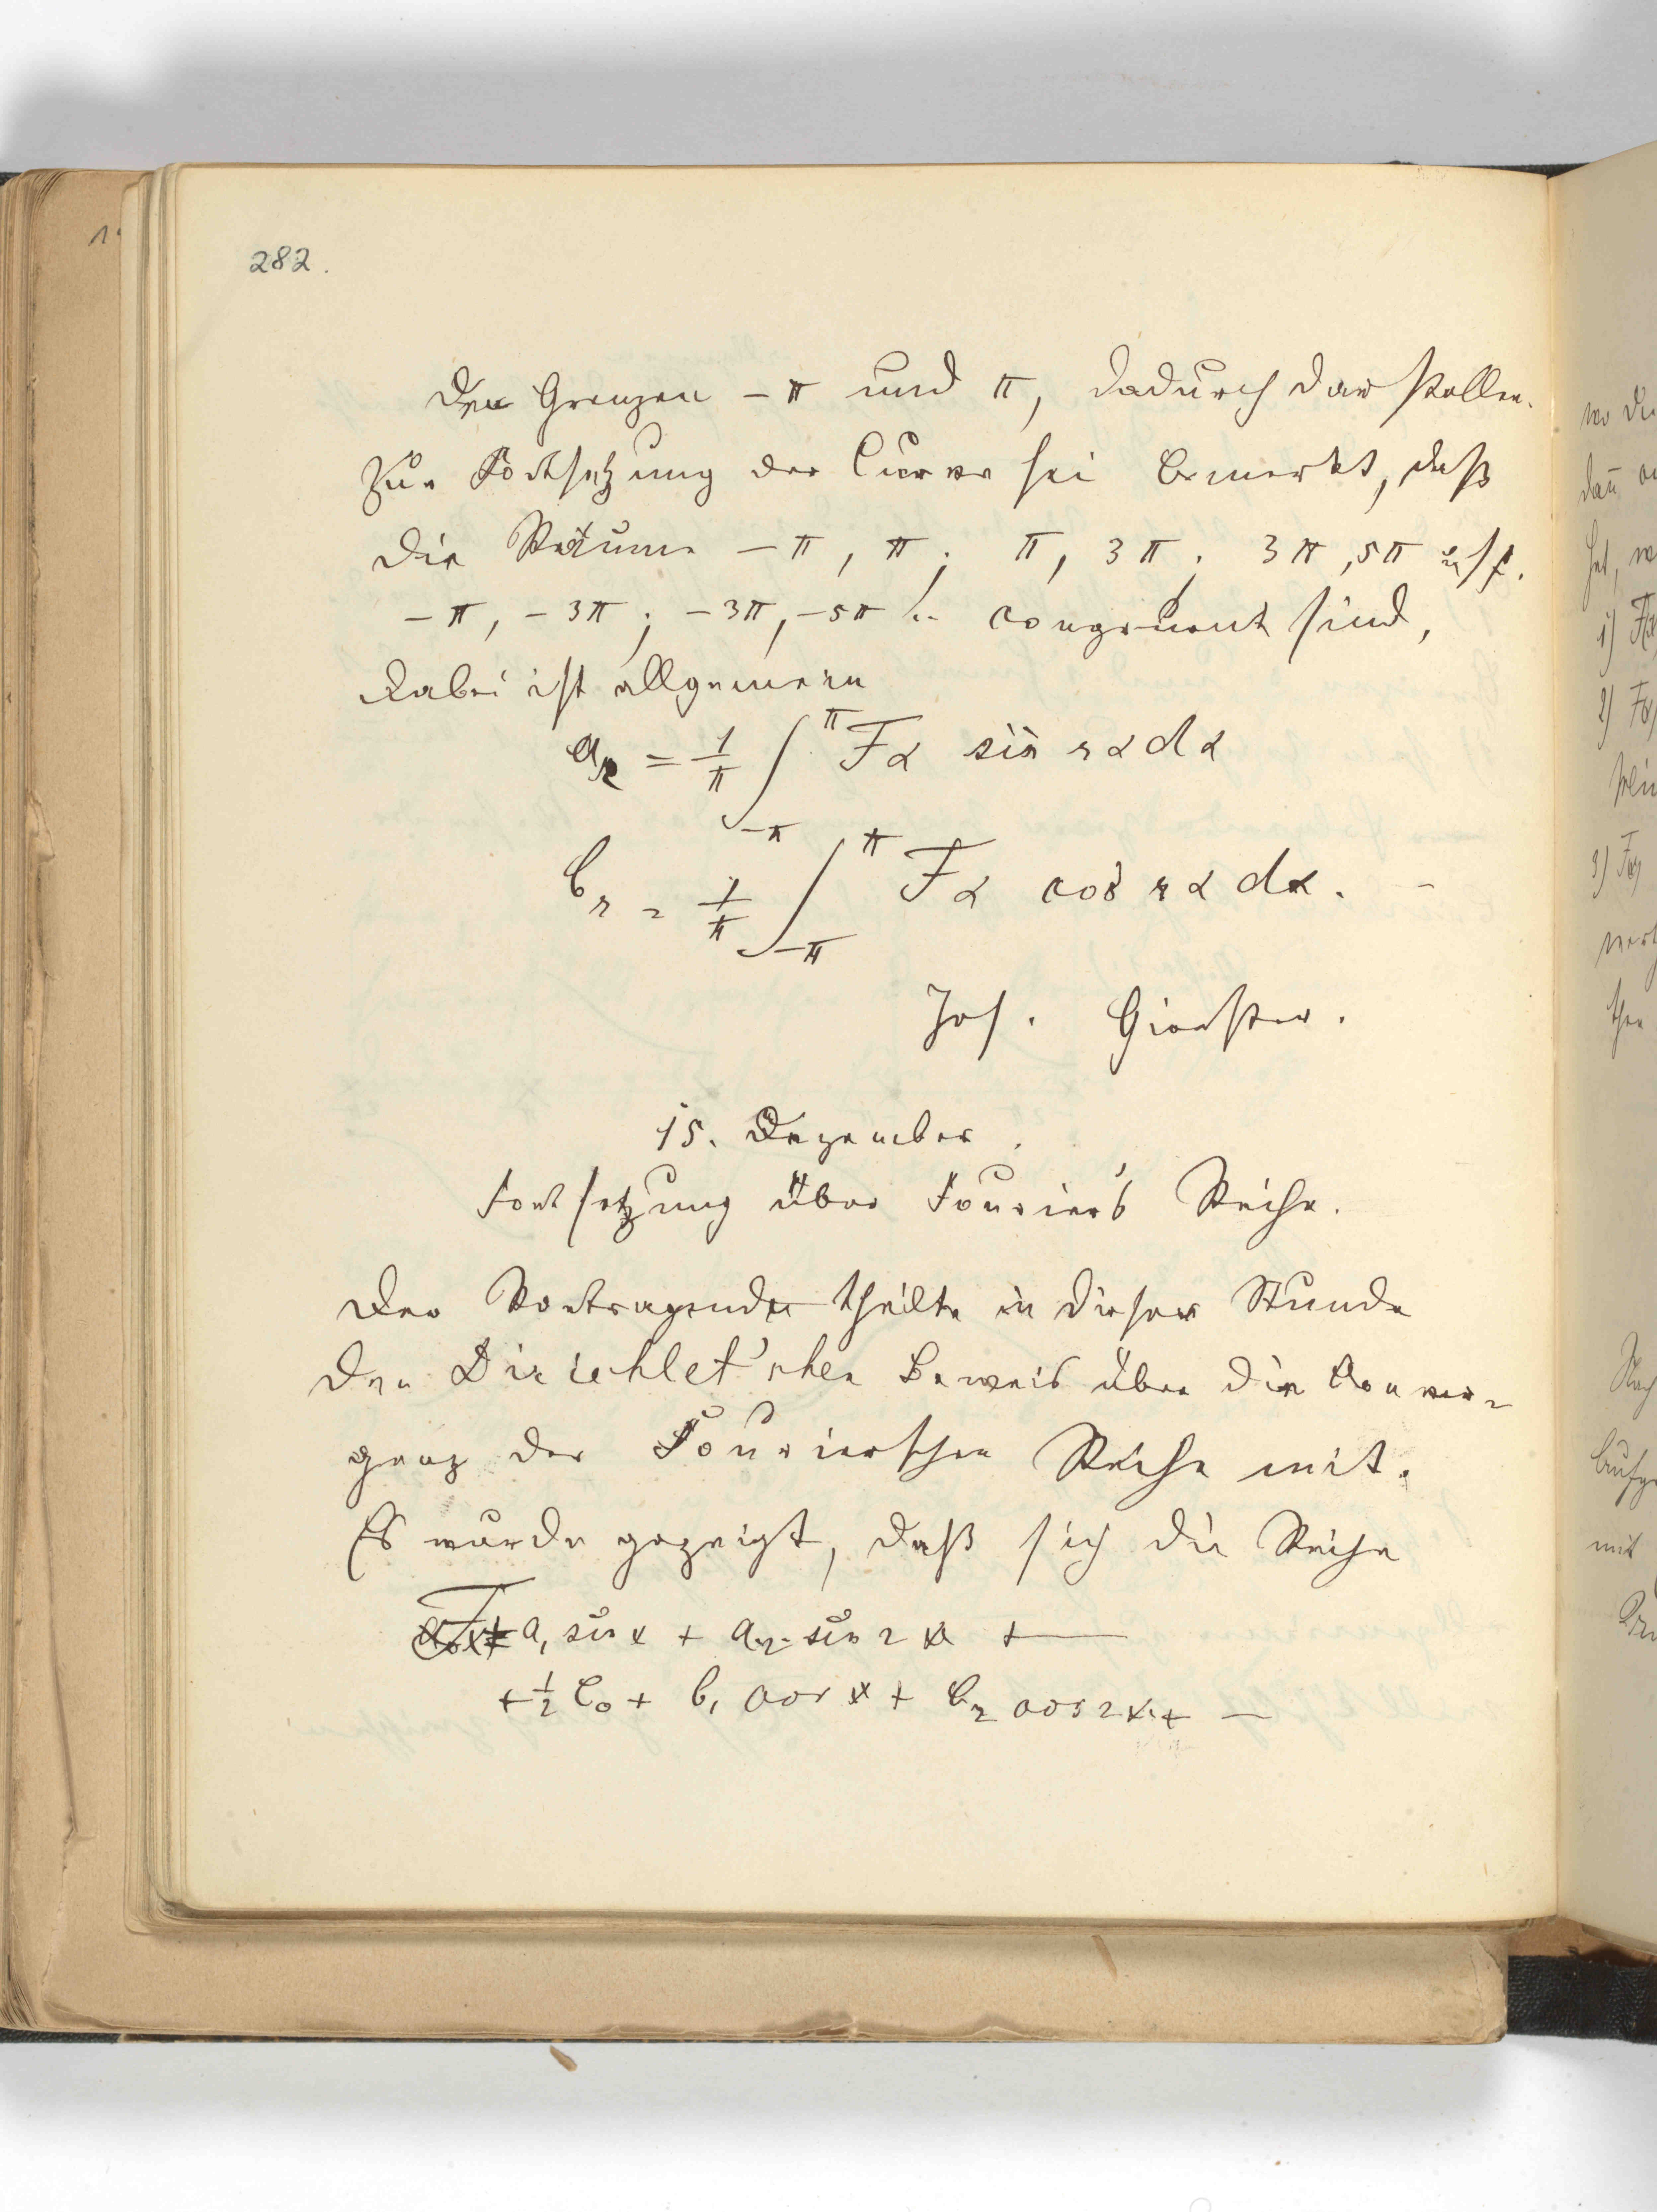 282.
den Grenzen -π und π, dadurch darstellen.
Zur Fortsetzung der Curve sei bemerkt, daß
die Räume -π, π; π, 3π; 3π, 5π usf.
-π, -3π; -3π, -5π .. congruent sind,
dabei ist allgemein
a_r = 1/π ∫_{-π}^{π} Fα sin rα dα
b_r = 1/π ∫_{-π}^{π} Fα cos rα dα. -
Jos. Gierster.
15. Dezember.
Fortsetzung über Fourier's Reihe.
Der Vortragende theilte in dieser Stunde
den Dirichlet'schen Beweis über die Conver-
genz der Fourierschen Reihe mit.
Es wurde gezeigt, daß sich die Reihe
a₁ sin x + a₂ sin 2x + —
+ ½ b₀ + b₁ cos x + b₂ cos 2x + —
wo die
dañ
1)
2)
3)
mit